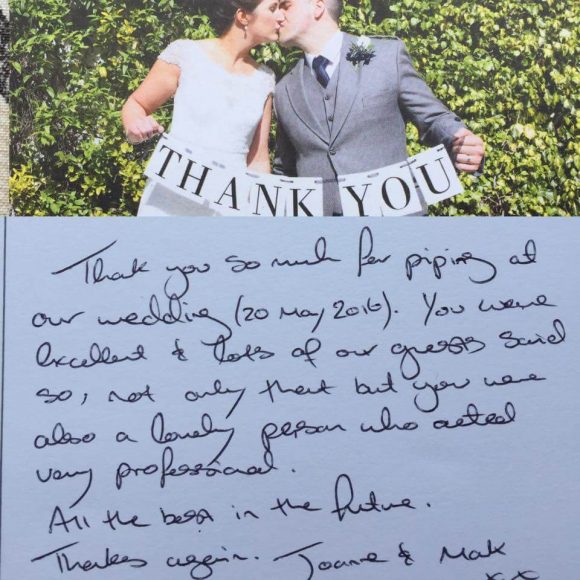 THANK YOU
Thank you so much for piping at
our wedding (20 May 2016). You were
excellent & lots of our guests said
so, not only that but you were
also a lovely person who acted
very professional.
All the best in the future.
Thanks again. Joanne & Mark